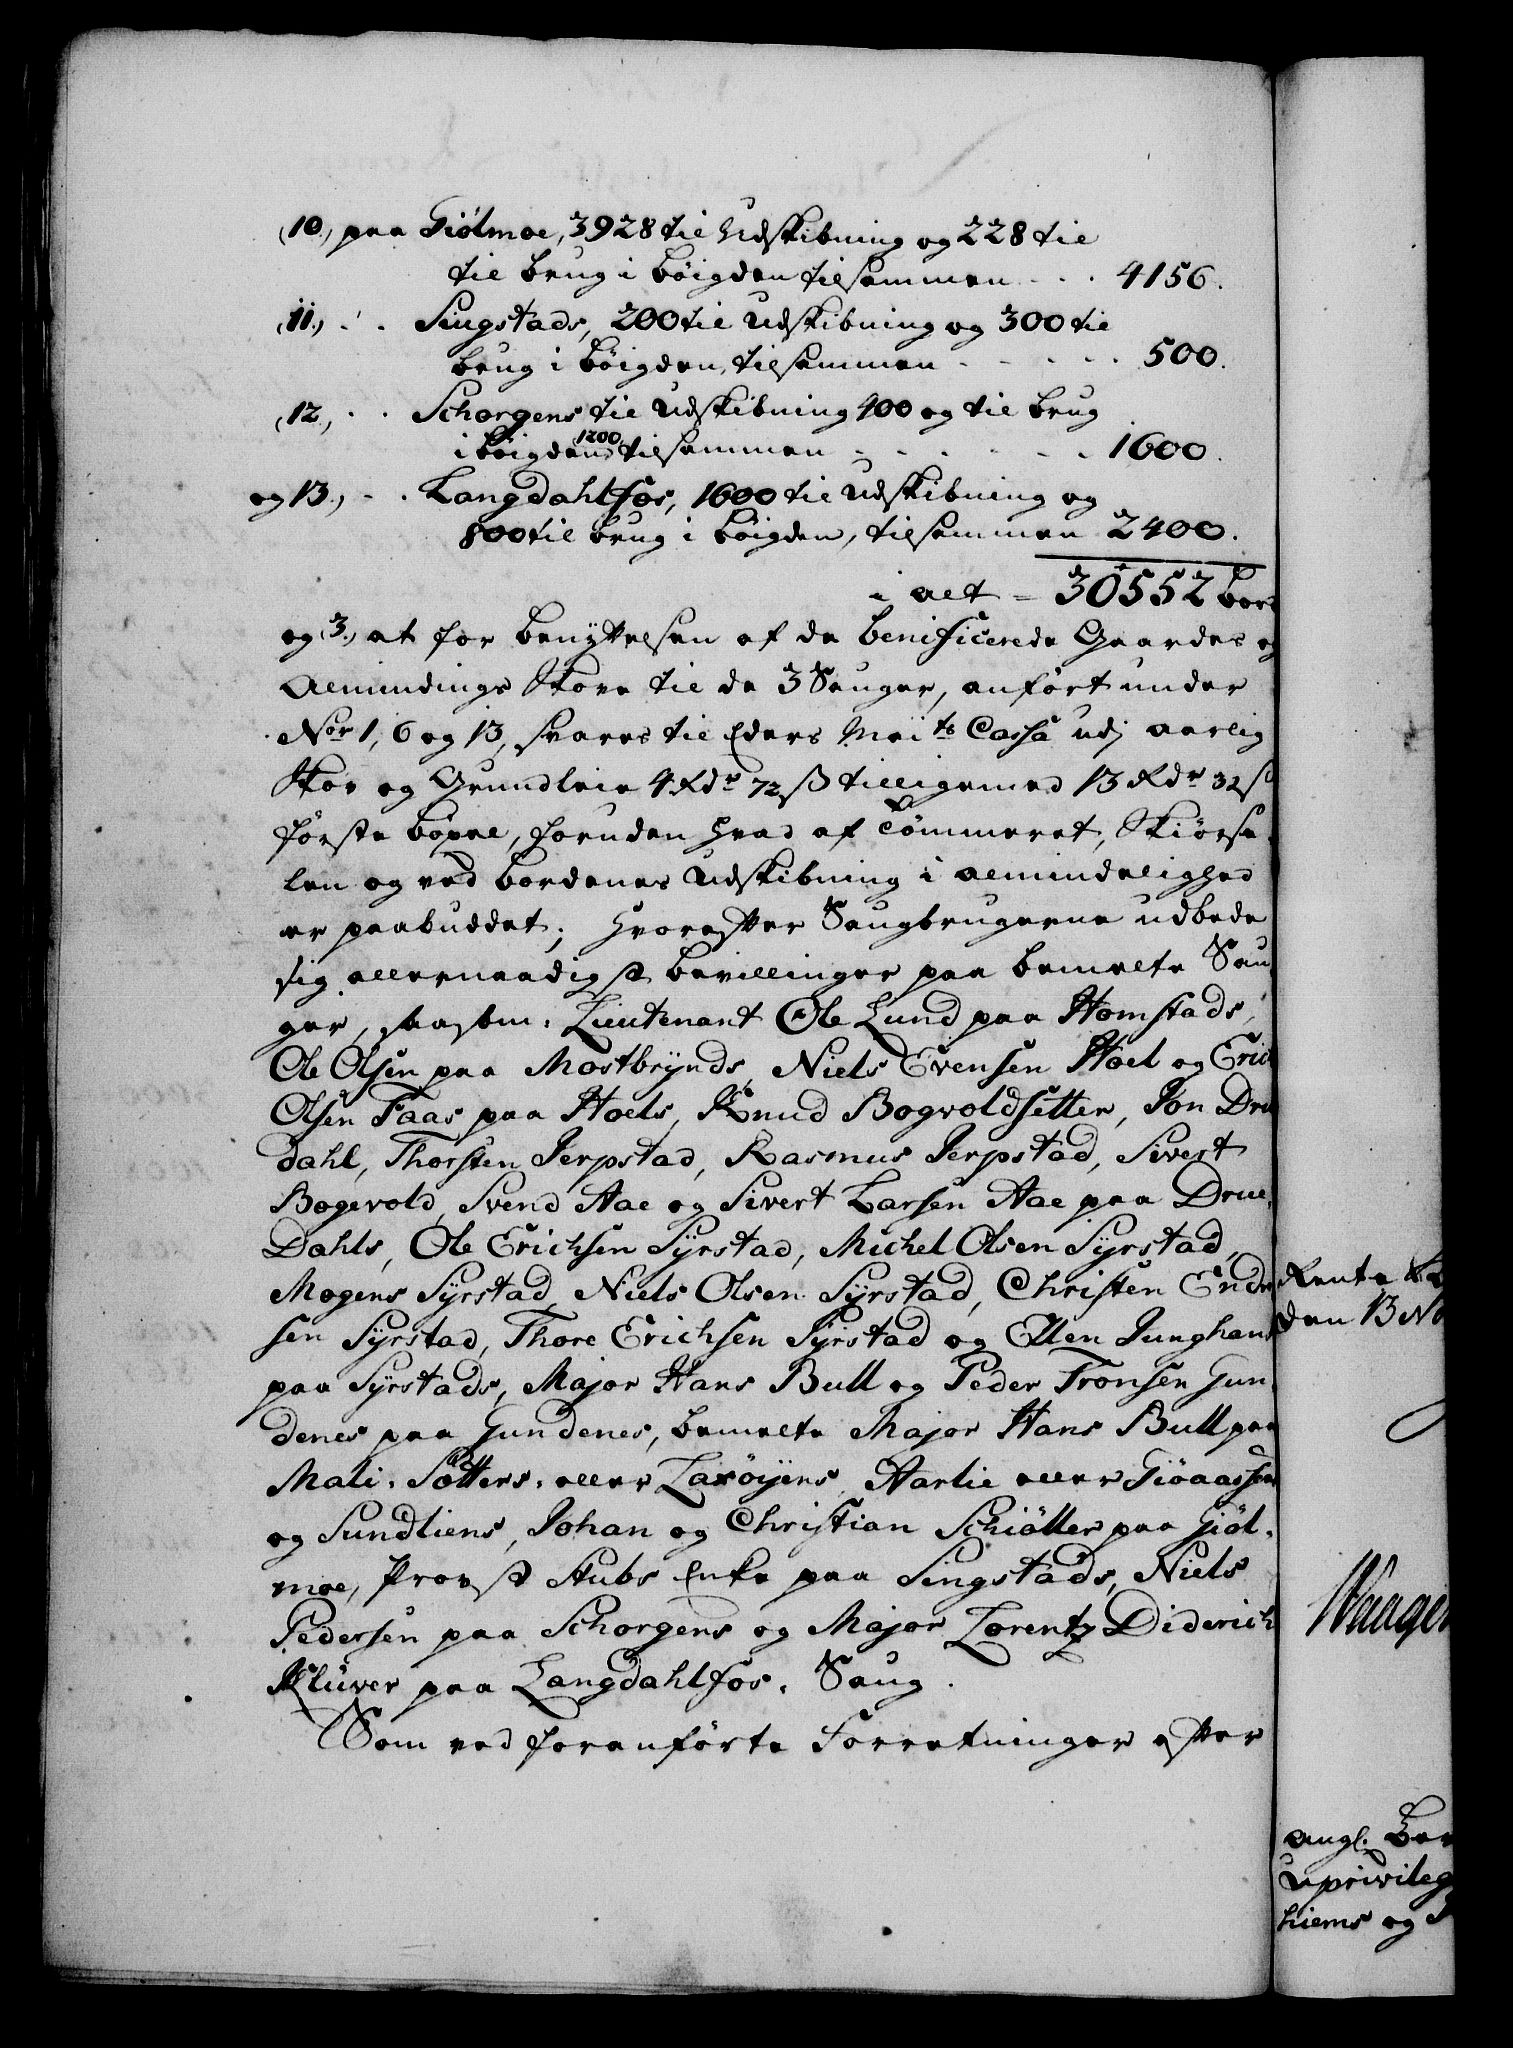 (10.) paa Giölmoe, 3928 til Udskibning og 228 til
til brug i böigden tilsammen . . . 4156.
(11.) . . Singstads, 200 til Udskibning og 300 til
brug i böigden, tilsammen . . . . . 500.
(12.) . . Schorgens til Udskibning 400 og til brug
i böigden 1200 tilsammen . . . . . . 1600.
og 13.) . . Langdahlfos, 1600 til Udskibning og
800 til brug i böigden, tilsammen 2400.
i alt = 30552 bord
og (3.) at for benyttelsen af de benificerede Gaardes og
Almindings Skove til de 3 Sauger, anført under
Nor 1, 6 og 13, svares til Eders Maits Cassa udj aarlig
Skov og Grundleie 4 Rdr 72 ß tilligemed 13 Rdr 32 ß
første böxel, foruden hvad af Tømmeret, Skiörse-
len og ved bordenes Udskibning i almindelighed
er paabuddet; hvorefter Saugbrugerne udbede
sig allernaadigst bevillinger paa bemelte Sau-
ger, saasom: Lieutenant Ole Lund paa Homstads,
Ole Olsen paa Mostbrynds, Niels Evensen Hoel og Erich
Olsen Faas paa Hoels, Knud Bogvoldsetter, Jon Drue
dahl, Thorsten Jerpstad, Rasmus Jerpstad, Sivert
Bogevold, Svend Aae og Sivert Larsen Aae paa Drue-
Dahls, Ole Erichsen Syrstad, Michel Olsen Syrstad,
Mogens Syrstad, Niels Olsen Syrstad, Christen Endre
sen Syrstad, Thore Erichsen Syrstad og Ellen Junghans
paa Syrstads, Major Hans Bull og Peder Fronsen Gun-
denes paa Gundenes, bemelte Major Hans Bull paa
Mali-Sætters- eller Laxöyens, Aarlie eller Giöaassens
og Sundliens, Johan og Christian Schiöller paa Giöl-
moe, Provst Stubs Enke paa Singstads, Niels
Pedersen paa Schorgens og Major Lorentz Diderich
Klüver paa Langdahlfos-Saug.
Som ved foranførte Forretninger efter
Rente
den 13 No
Waage
angl.
Upprivileg
hiems og